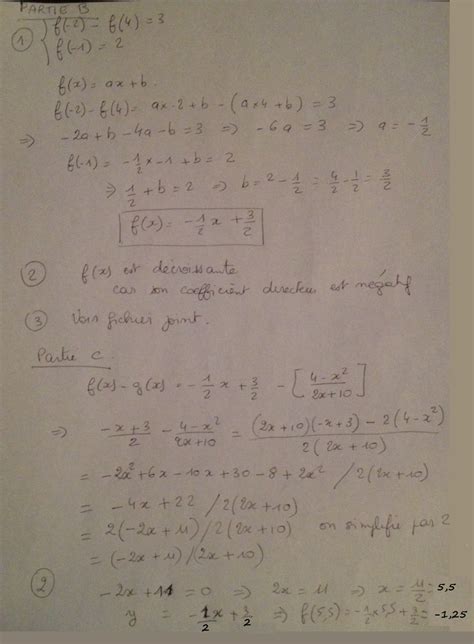 PARTIE B
① { f(-2) - f(4) = 3
f(-1) = 2
f(x) = ax + b
f(-2) - f(4) = a×-2 + b - (a×4 + b) = 3
⇒ -2a + b - 4a - b = 3 ⇒ -6a = 3 ⇒ a = -1/2
f(-1) = -1/2 × -1 + b = 2
⇒ 1/2 + b = 2 ⇒ b = 2 - 1/2 = 4/2 - 1/2 = 3/2
f(x) = -1/2 x + 3/2
② f(x) est décroissante
car son coefficient directeur est négatif
③ Voir fichier joint.
Partie C
f(x) - g(x) = -1/2 x + 3/2 - [ (4 - x²)/(2x+10) ]
⇒ (-x+3)/2 - (4-x²)/(2x+10) = ((2x+10)(-x+3) - 2(4-x²))/(2(2x+10))
= -2x² + 6x - 10x + 30 - 8 + 2x² / 2(2x+10)
= -4x + 22 / 2(2x+10)
= 2(-2x+11) / 2(2x+10) on simplifie par 2
= (-2x+11) / (2x+10)
② -2x + 11 = 0 ⇒ 2x = 11 ⇒ x = 11/2 = 5,5
y = -1/2 x + 3/2 ⇒ f(5,5) = -1/2 × 5,5 + 3/2 = -1,25